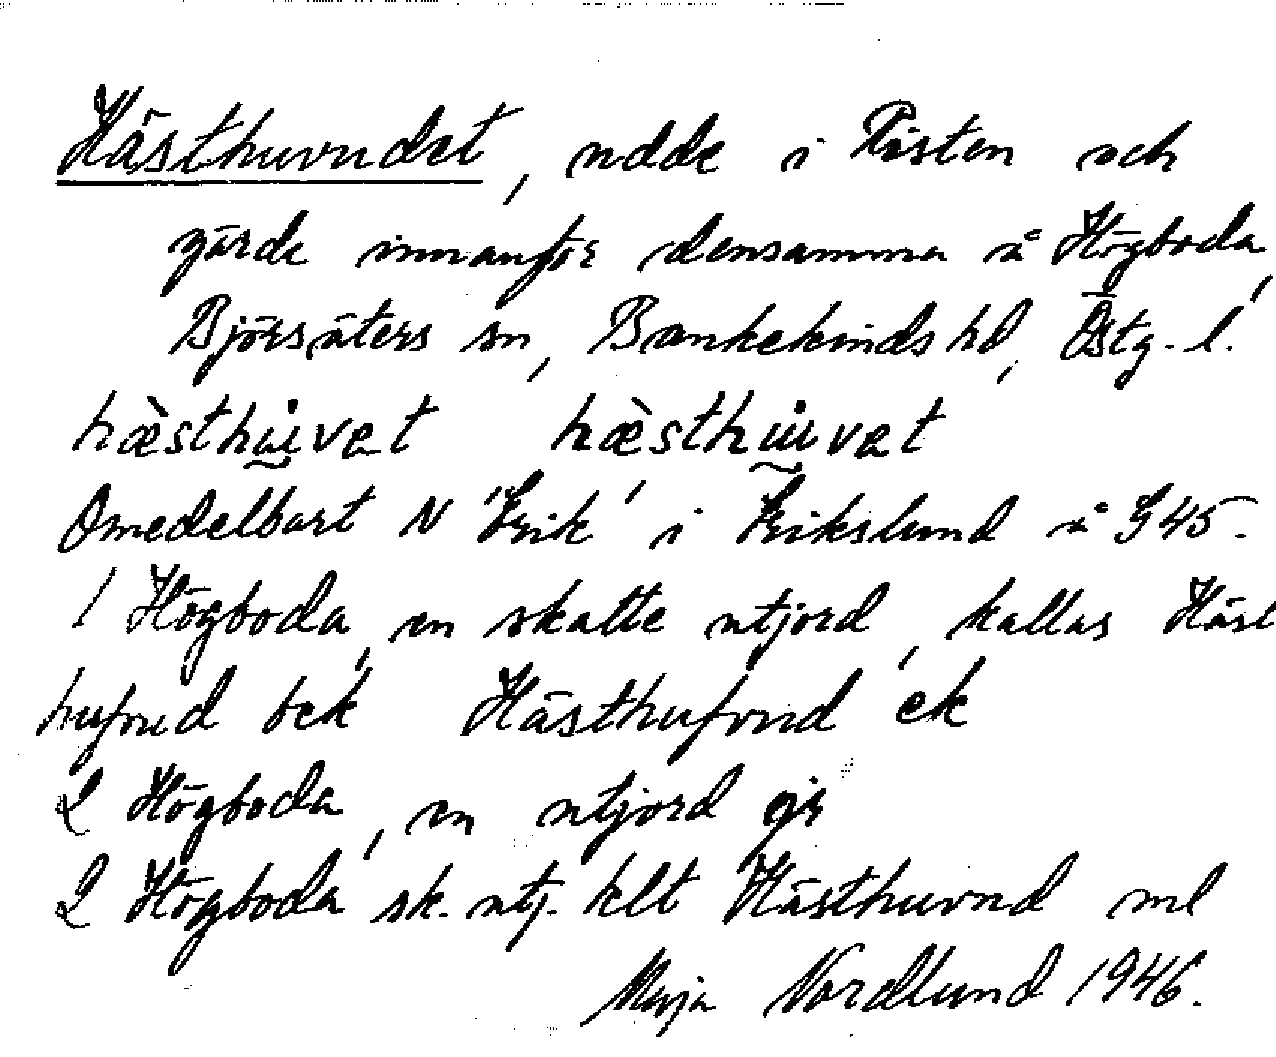 Hästhuvudet, udde i Risten och
gärde innanför densamma å Högboda,
Björsäters sn, Bankekinds hd, Östg. l.
hæ̀sthu̇vət hæ̀sthu̇vət
Omedelbart N 'Erik' i Erikslund å G 45.
1 Högboda, en skatte utjord, kallas Häst
hufvud Hästhufvud ek
2 Högboda, en utjord
2 Högboda sk. utj. klt Hästhuvud
Maja Nordlund 1946.